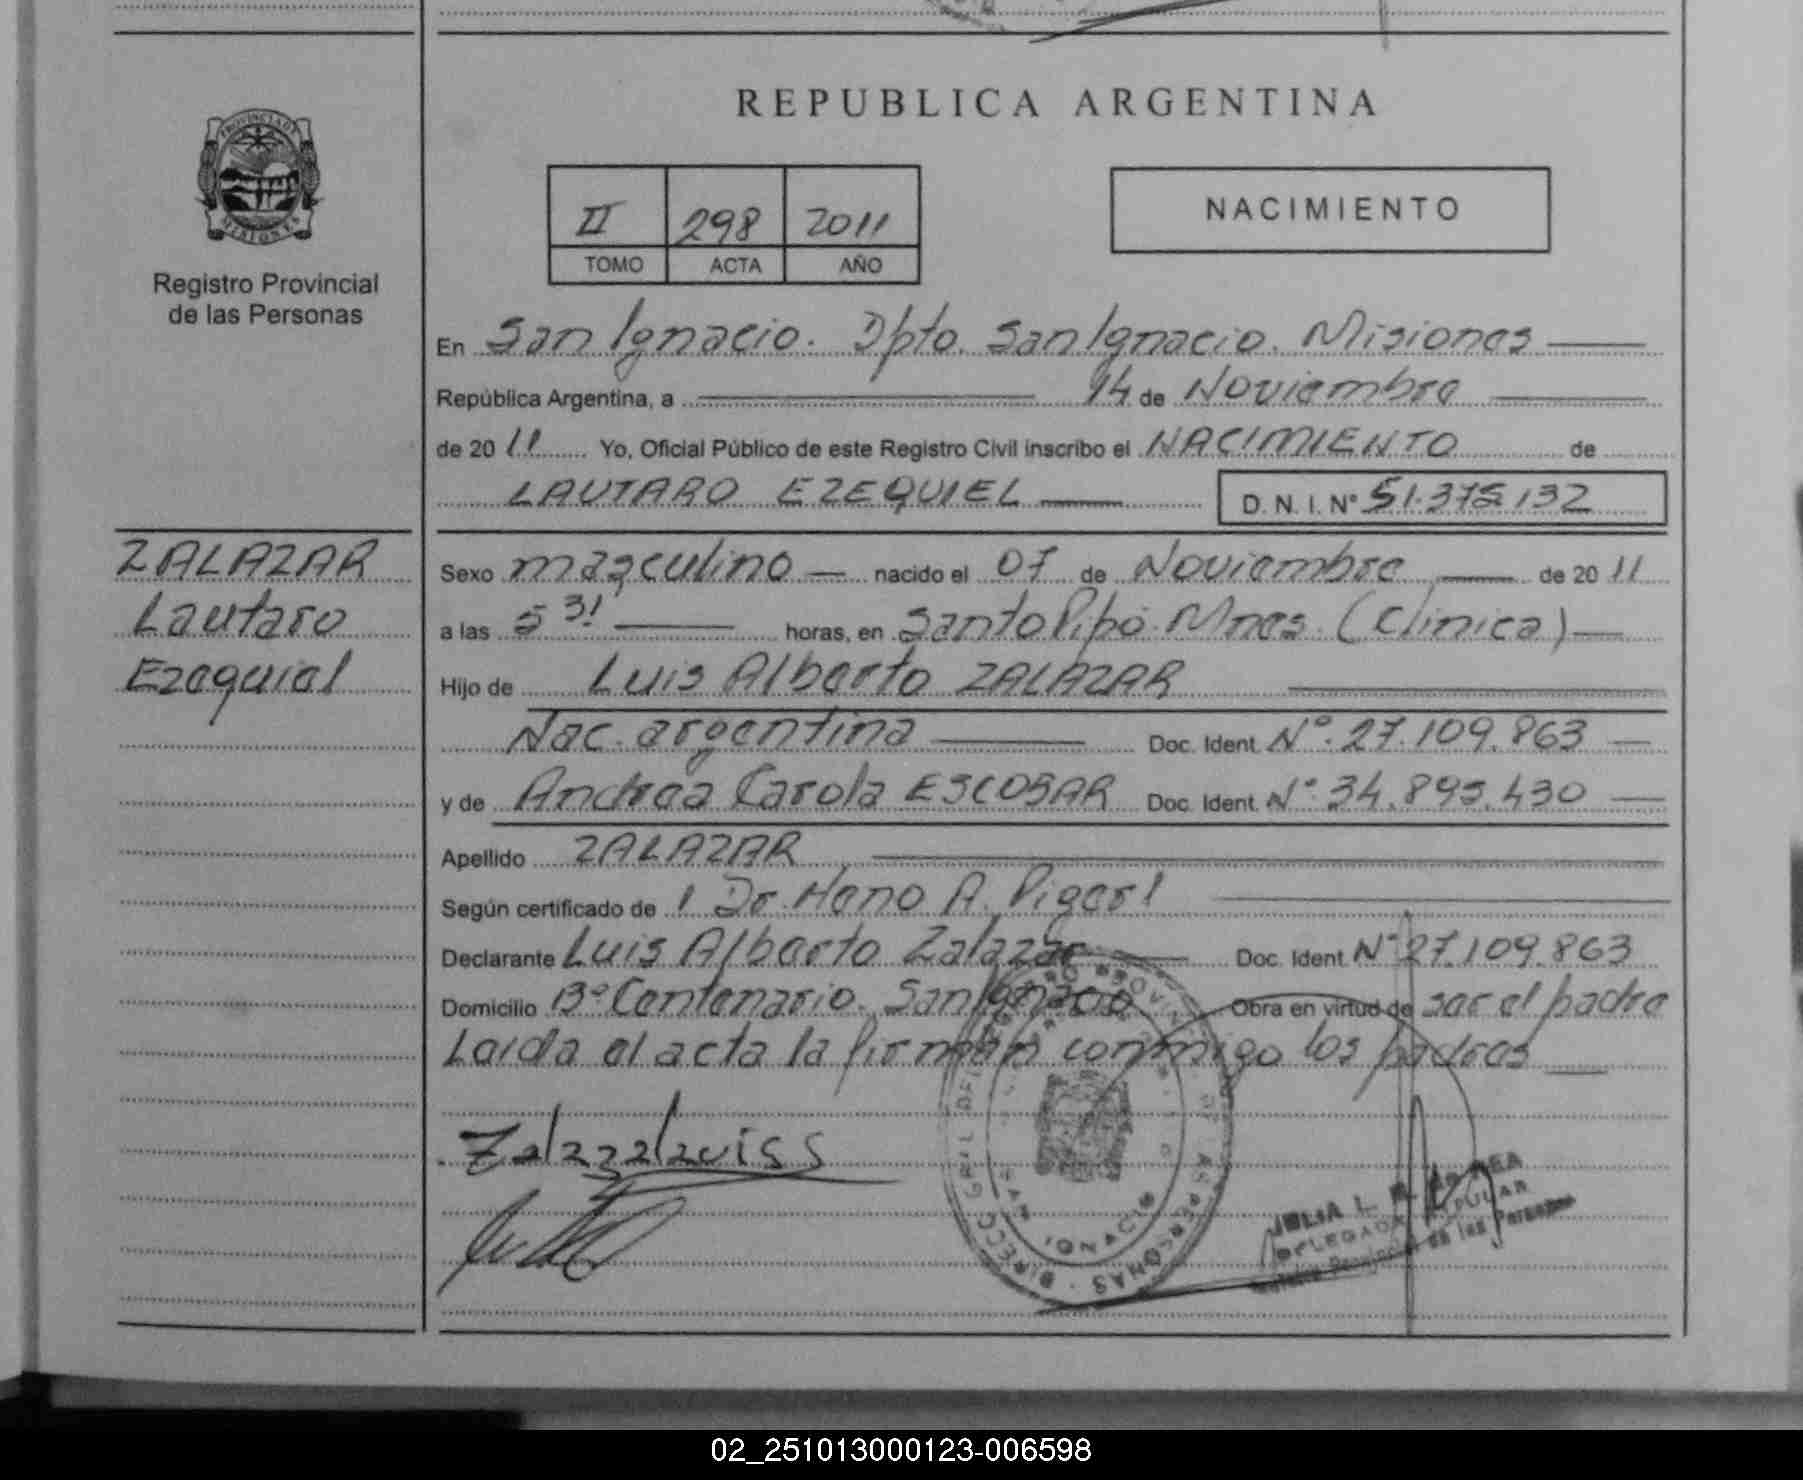 REPUBLICA ARGENTINA
PROVINCIA DE
MISIONES
Registro Provincial
de las Personas
NACIMIENTO
II 298 2011
TOMO ACTA AÑO
En San Ignacio. Dpto. San Ignacio. Misiones
República Argentina, a 14 de Noviembre
de 2011 Yo, Oficial Público de este Registro Civil inscribo el NACIMIENTO de
LAUTARO EZEQUIEL D.N.I. Nº 51.375.132
ZALAZAR
Lautaro
Ezequiel
Sexo masculino nacido el 07 de Noviembre de 2011
a las 5 31 horas, en Santo Pipó. Mnes. (Clinica)
Hijo de Luis Alberto ZALAZAR
Nac. argentina Doc. Ident. Nº. 27.109.863
y de Andrea Carola ESCOBAR Doc. Ident. Nº. 34.895.430
Apellido ZALAZAR
Según certificado de Dr. A.
Declarante Luis Alberto Zalazar Doc. Ident. Nº 27.109.863
Domicilio Bº Centenario. San Ignacio Obra en virtud de ser el padre
Leida el acta la firman conmigo los padres
JULIA L.
Registro Provincial de las Personas
02_251013000123-006598